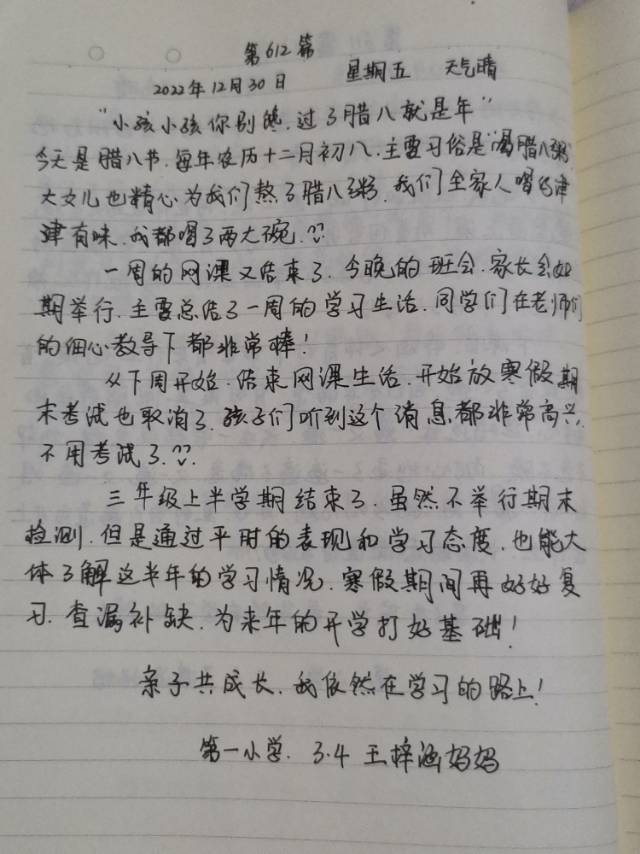 第612篇
2022年12月30日 星期五 天气晴
“小孩小孩你别馋,过了腊八就是年”
今天是腊八节,每年农历十二月初八,主要习俗是“喝腊八粥”
大女儿也精心为我们熬了腊八粥,我们全家人喝的津
津有味,我都喝了两大碗,??
一周的网课又结束了,今晚的班会,家长会如
期举行,主要总结了一周的学习生活,同学们在老师们
的细心教导下都非常棒!
从下周开始,结束网课生活,开始放寒假期
末考试也取消了,孩子们听到这个消息都非常高兴,
不用考试了,??
三年级上半学期结束了,虽然不举行期末
检测,但是通过平时的表现和学习态度,也能大
体了解这半年的学习情况,寒假期间再好好复
习,查漏补缺,为来年的开学打好基础!
亲子共成长,我依然在学习的路上!
第一小学,3.4 王梓涵妈妈